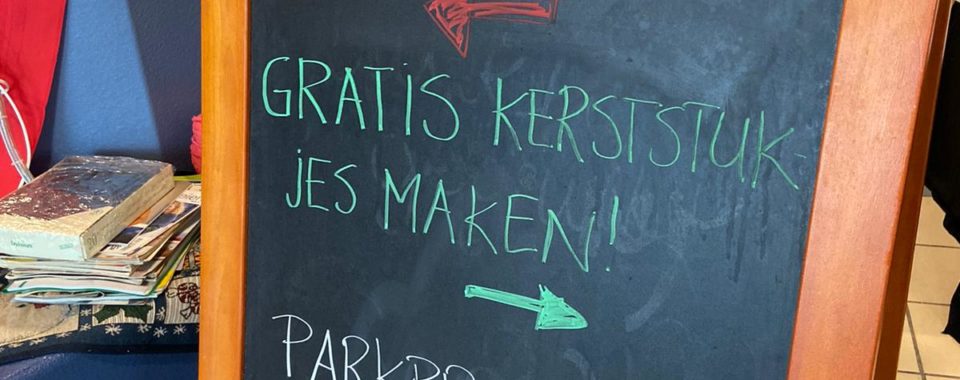 GRATIS KERSTSTUK-
JES MAKEN!